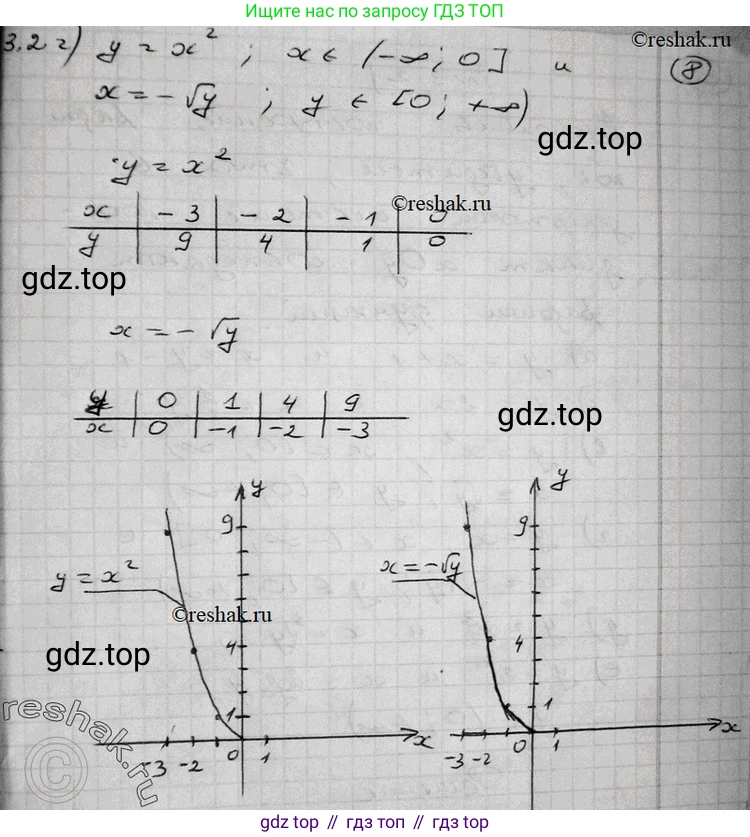 Ищите нас по запросу ГДЗ ТОП
3.2 г) y = x² ; x ∈ (-∞; 0] и
©reshak.ru
8
x = -√y ; y ∈ [0; +∞)
gdz.top
y = x²
x | -3 | -2 | -1 | 0
©reshak.ru
y | 9 | 4 | 1 | 0
gdz.top
x = -√y
y | 0 | 1 | 4 | 9
x | 0 | -1 | -2 | -3
gdz.top
y
y
9
9
y = x²
x = -√y
©reshak.ru
4
4
gdz.top
1
1
reshak.ru
©
x
x
-3 -2 0 1
-3 -2 0 1
gdz.top // gdz.top // gdz.top // gdz.top